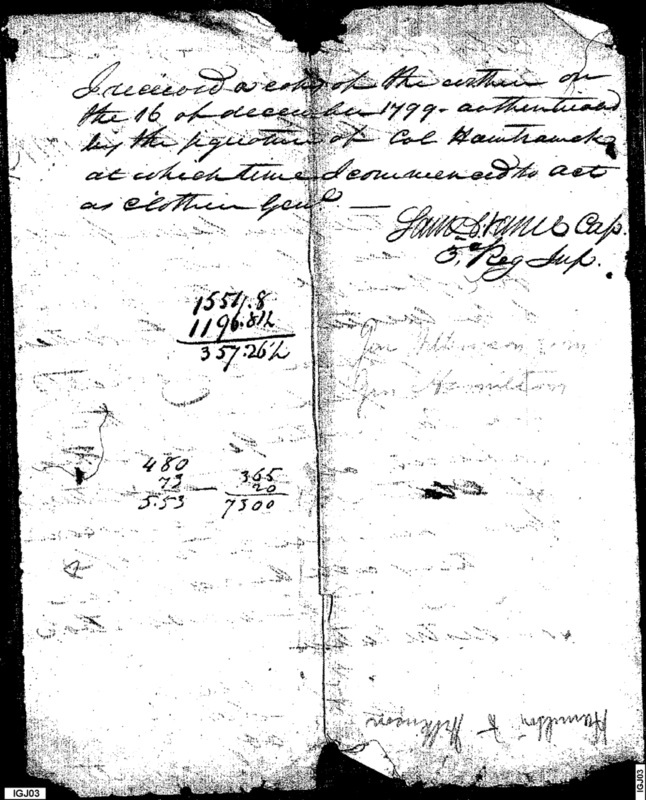 I received a copy of the within on
the 16 of december 1799 - authenticated
by the signature of Col Hamtramck
at which time I commenced to act
as clothier Genl. —
Cap.
3d Reg Inf.
1554.8
1196.81½
357.26½
Gen Wilkinson from
Gen Hamilton
480
73
5.53
365
20
7300
Hamilton to Wilkinson
IGJ03
IGJ03